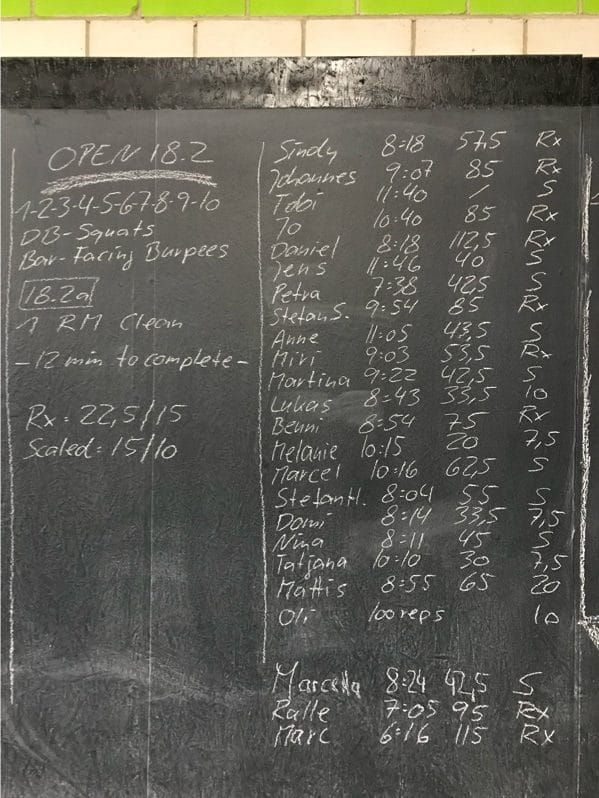 OPEN 18.2
1-2-3-4-5-6-7-8-9-10
DB-Squats
Bar-Facing Burpees
18.2a
1 RM Clean
-12 min to complete-
Rx: 22,5/15
Scaled: 15/10
Sindy 8:18 57,5 Rx
Johannes 9:07 85 Rx
Tobi 11:40 / S
Jo 10:40 85 Rx
Daniel 8:18 112,5 Rx
Jens 11:46 40 S
Petra 7:38 42,5 S
Stefan S. 9:54 85 Rx
Anne 11:05 43,5 S
Miri 9:03 53,5 Rx
Martina 9:22 42,5 S
Lukas 8:43 33,5 10
Benni 8:54 75 Rx
Melanie 10:15 20 7,5
Marcel 10:16 62,5 S
Stefan H. 8:04 55 S
Domi 8:14 33,5 7,5
Nina 8:11 45 S
Tatjana 10:10 30 7,5
Mattis 8:55 65 20
Oli 100 reps 10
Marcella 8:24 42,5 S
Ralle 7:05 95 Rx
Marc 6:16 115 Rx